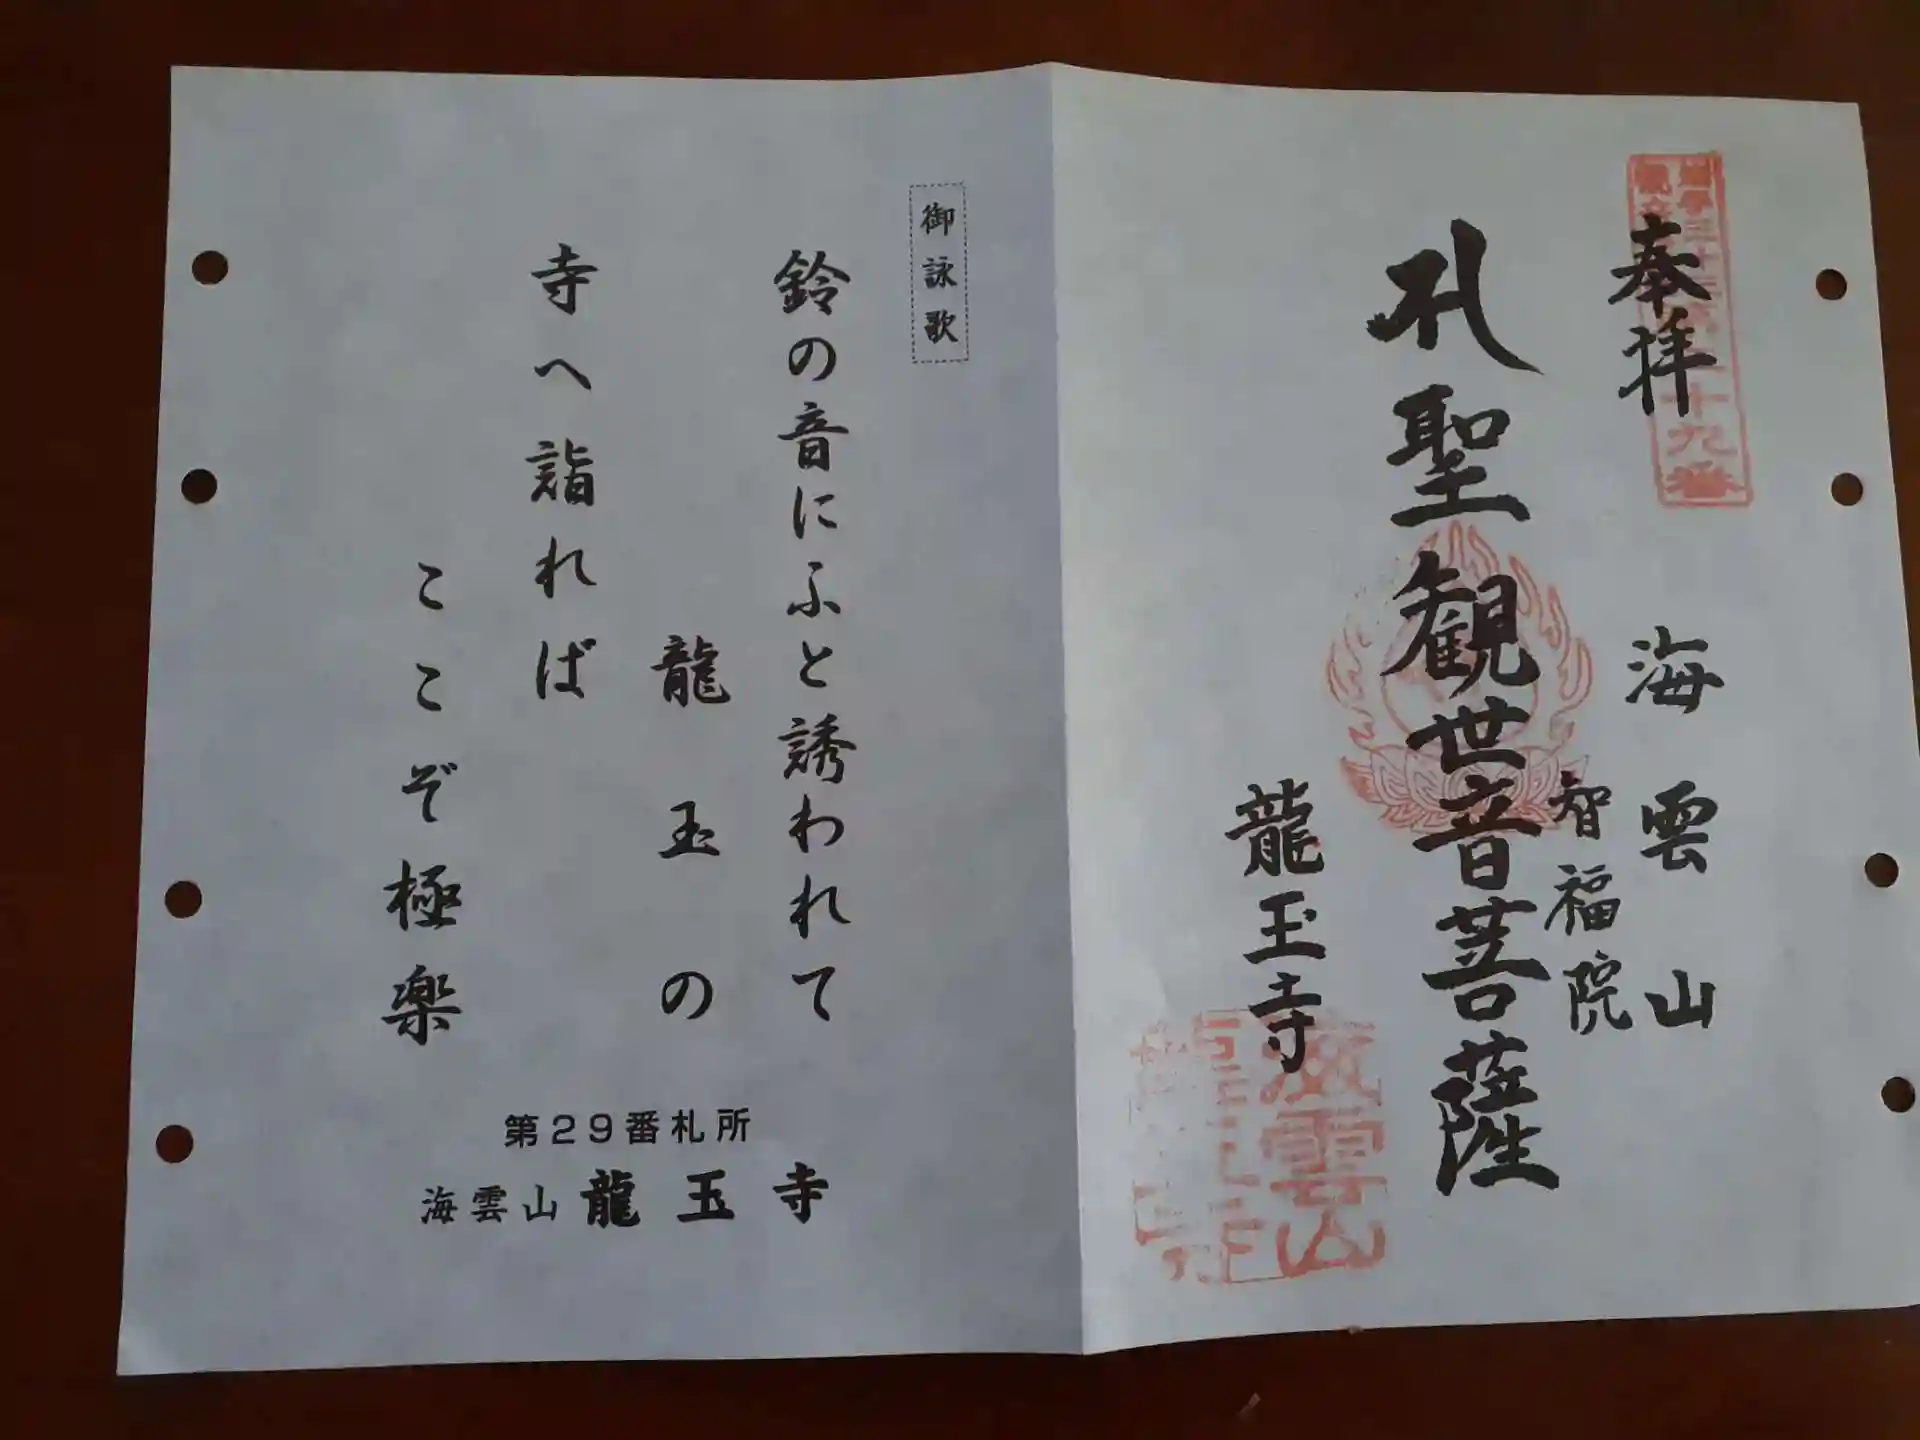 奉拝
海雲山
智福院
聖観世音菩薩
龍玉寺
十九番
海雲山
御詠歌
鈴の音にふと誘われて
龍玉の
寺へ詣れば
ここぞ極楽
第29番札所
海雲山 龍玉寺